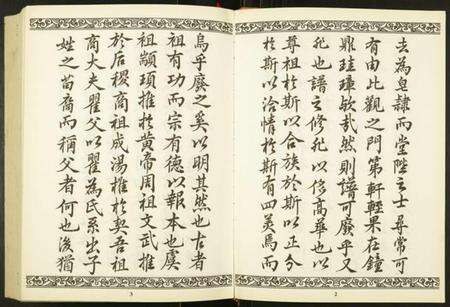 去為皂隸而堂陛之士尋常可
有由此觀之門第軒輊果在鐘
鼎珪璋欤哉然則譜可廢乎又
非也譜之修非以侈高華也以
尊祖於斯以合族於斯以正分
於斯以洽情於斯有四美焉而
2
烏乎廢之奚以明其然也古者
祖有功而宗有德以報本也虞
祖顓頊推於黃帝周祖文武推
於后稷商祖成湯推於契吾祖
商大夫瞿父以瞿為氏系出子
姓之苗裔而稱父者何也後猶
3